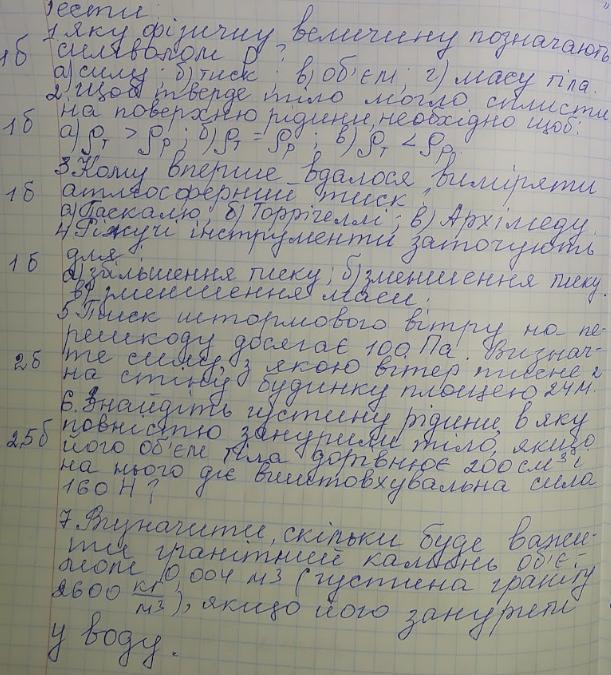 Тести.
1б 1. Яку фізичну величину позначають
символом р?
а) силу; б) тиск; в) об'єм; г) масу тіла.
2. Щоб тверде тіло могло сплисти
1б на поверхню рідини, необхідно щоб:
а) ρт > ρр; б) ρт = ρр; в) ρт < ρр
3. Кому вперше вдалося виміряти
1б атмосферний тиск
а) Паскалю; б) Торрічеллі; в) Архімеду.
4. Ріжучі інструменти заточують
1б для:
а) збільшення тиску; б) зменшення тиску.
в) зменшення маси.
5. Тиск штормового вітру на пе-
решкоду досягає 100 Па. Визнач-
2б те силу, з якою вітер тисне
на стіну будинку площею 24 м2.
6. Знайдіть густину рідини, в яку
2,5б повністю занурили тіло, якщо
його об'єм тіла дорівнює 200 см3 і
на нього діє виштовхувальна сила
160 Н?
7. Визначити, скільки буде важи-
ти гранітний камінь об'є-
мом 0,004 м3 (густина граніту
2600 кг/м3), якщо його занурені
у воду.